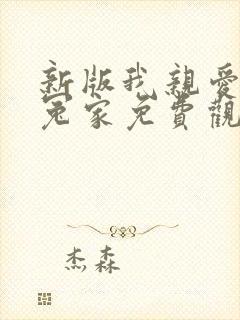 新版我親愛
冤家免費觀
杰森